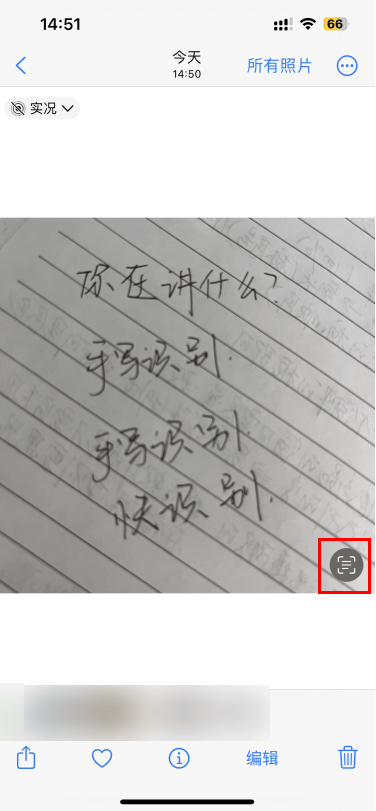 14:51
66
今天
14:50
所有照片
实况
你在讲什么?
手写识别.
手写识别.
快识别.
编辑